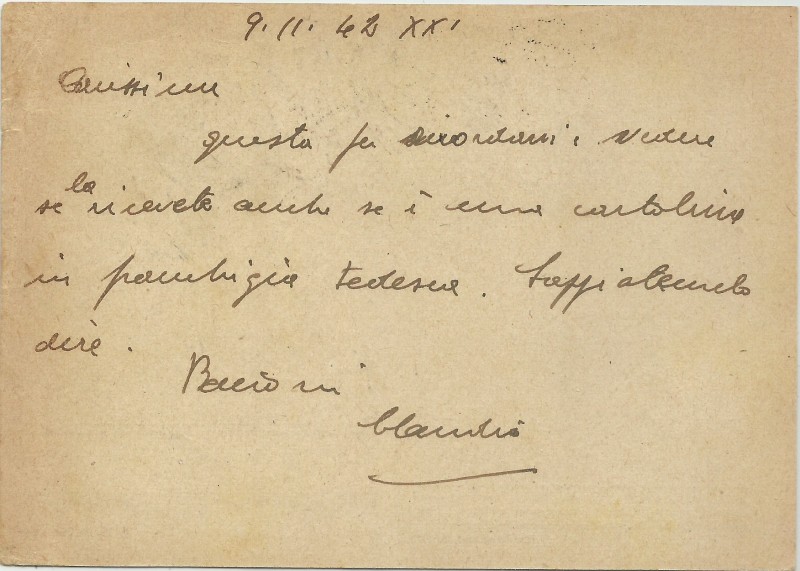 9. 11. 42 XXI
Carissimi
questa per ricordarvi e vedere
se la ricevete anche se è una cartolina
in franchigia tedesca. Sappiatemelo
dire.
Bacioni
Claudio